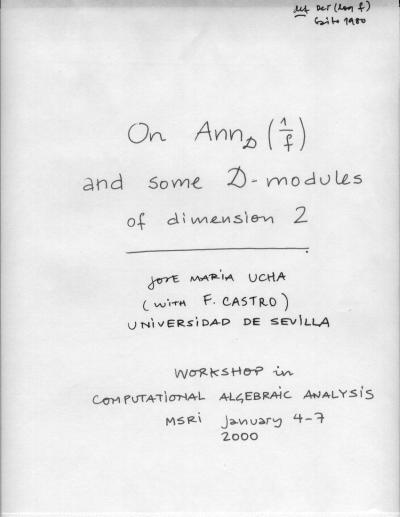 Der (log f)
Saito 1980
On Ann_D (1/f)
and some D-modules
of dimension 2
JOSE MARÍA UCHA
(WITH F. CASTRO)
UNIVERSIDAD DE SEVILLA
WORKSHOP in
COMPUTATIONAL ALGEBRAIC ANALYSIS
MSRI January 4-7
2000